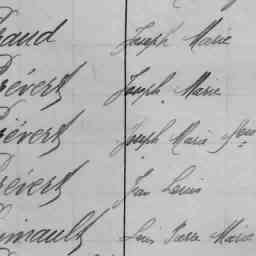 raud Joseph Marie
Prévert Joseph Marie
Prévert Joseph Marie
Prévert Jean Louis
Louis Pierre Marie